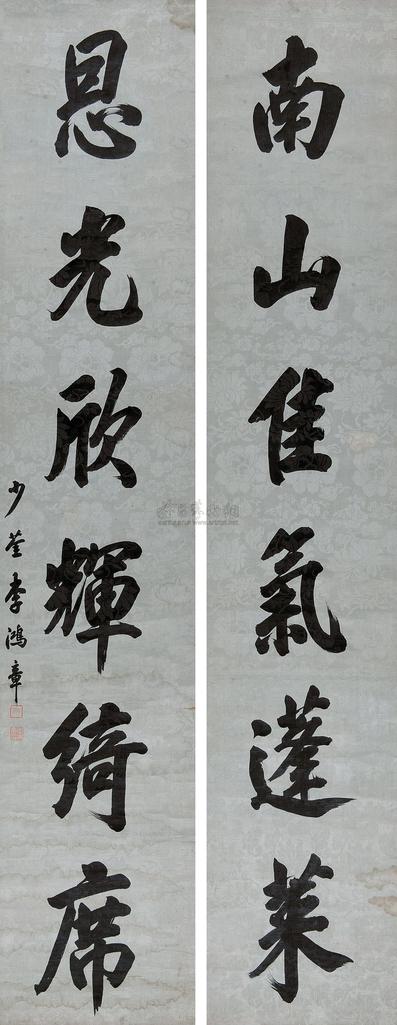 南山佳氣蓬萊
恩光欣輝綺席
少荃李鴻章